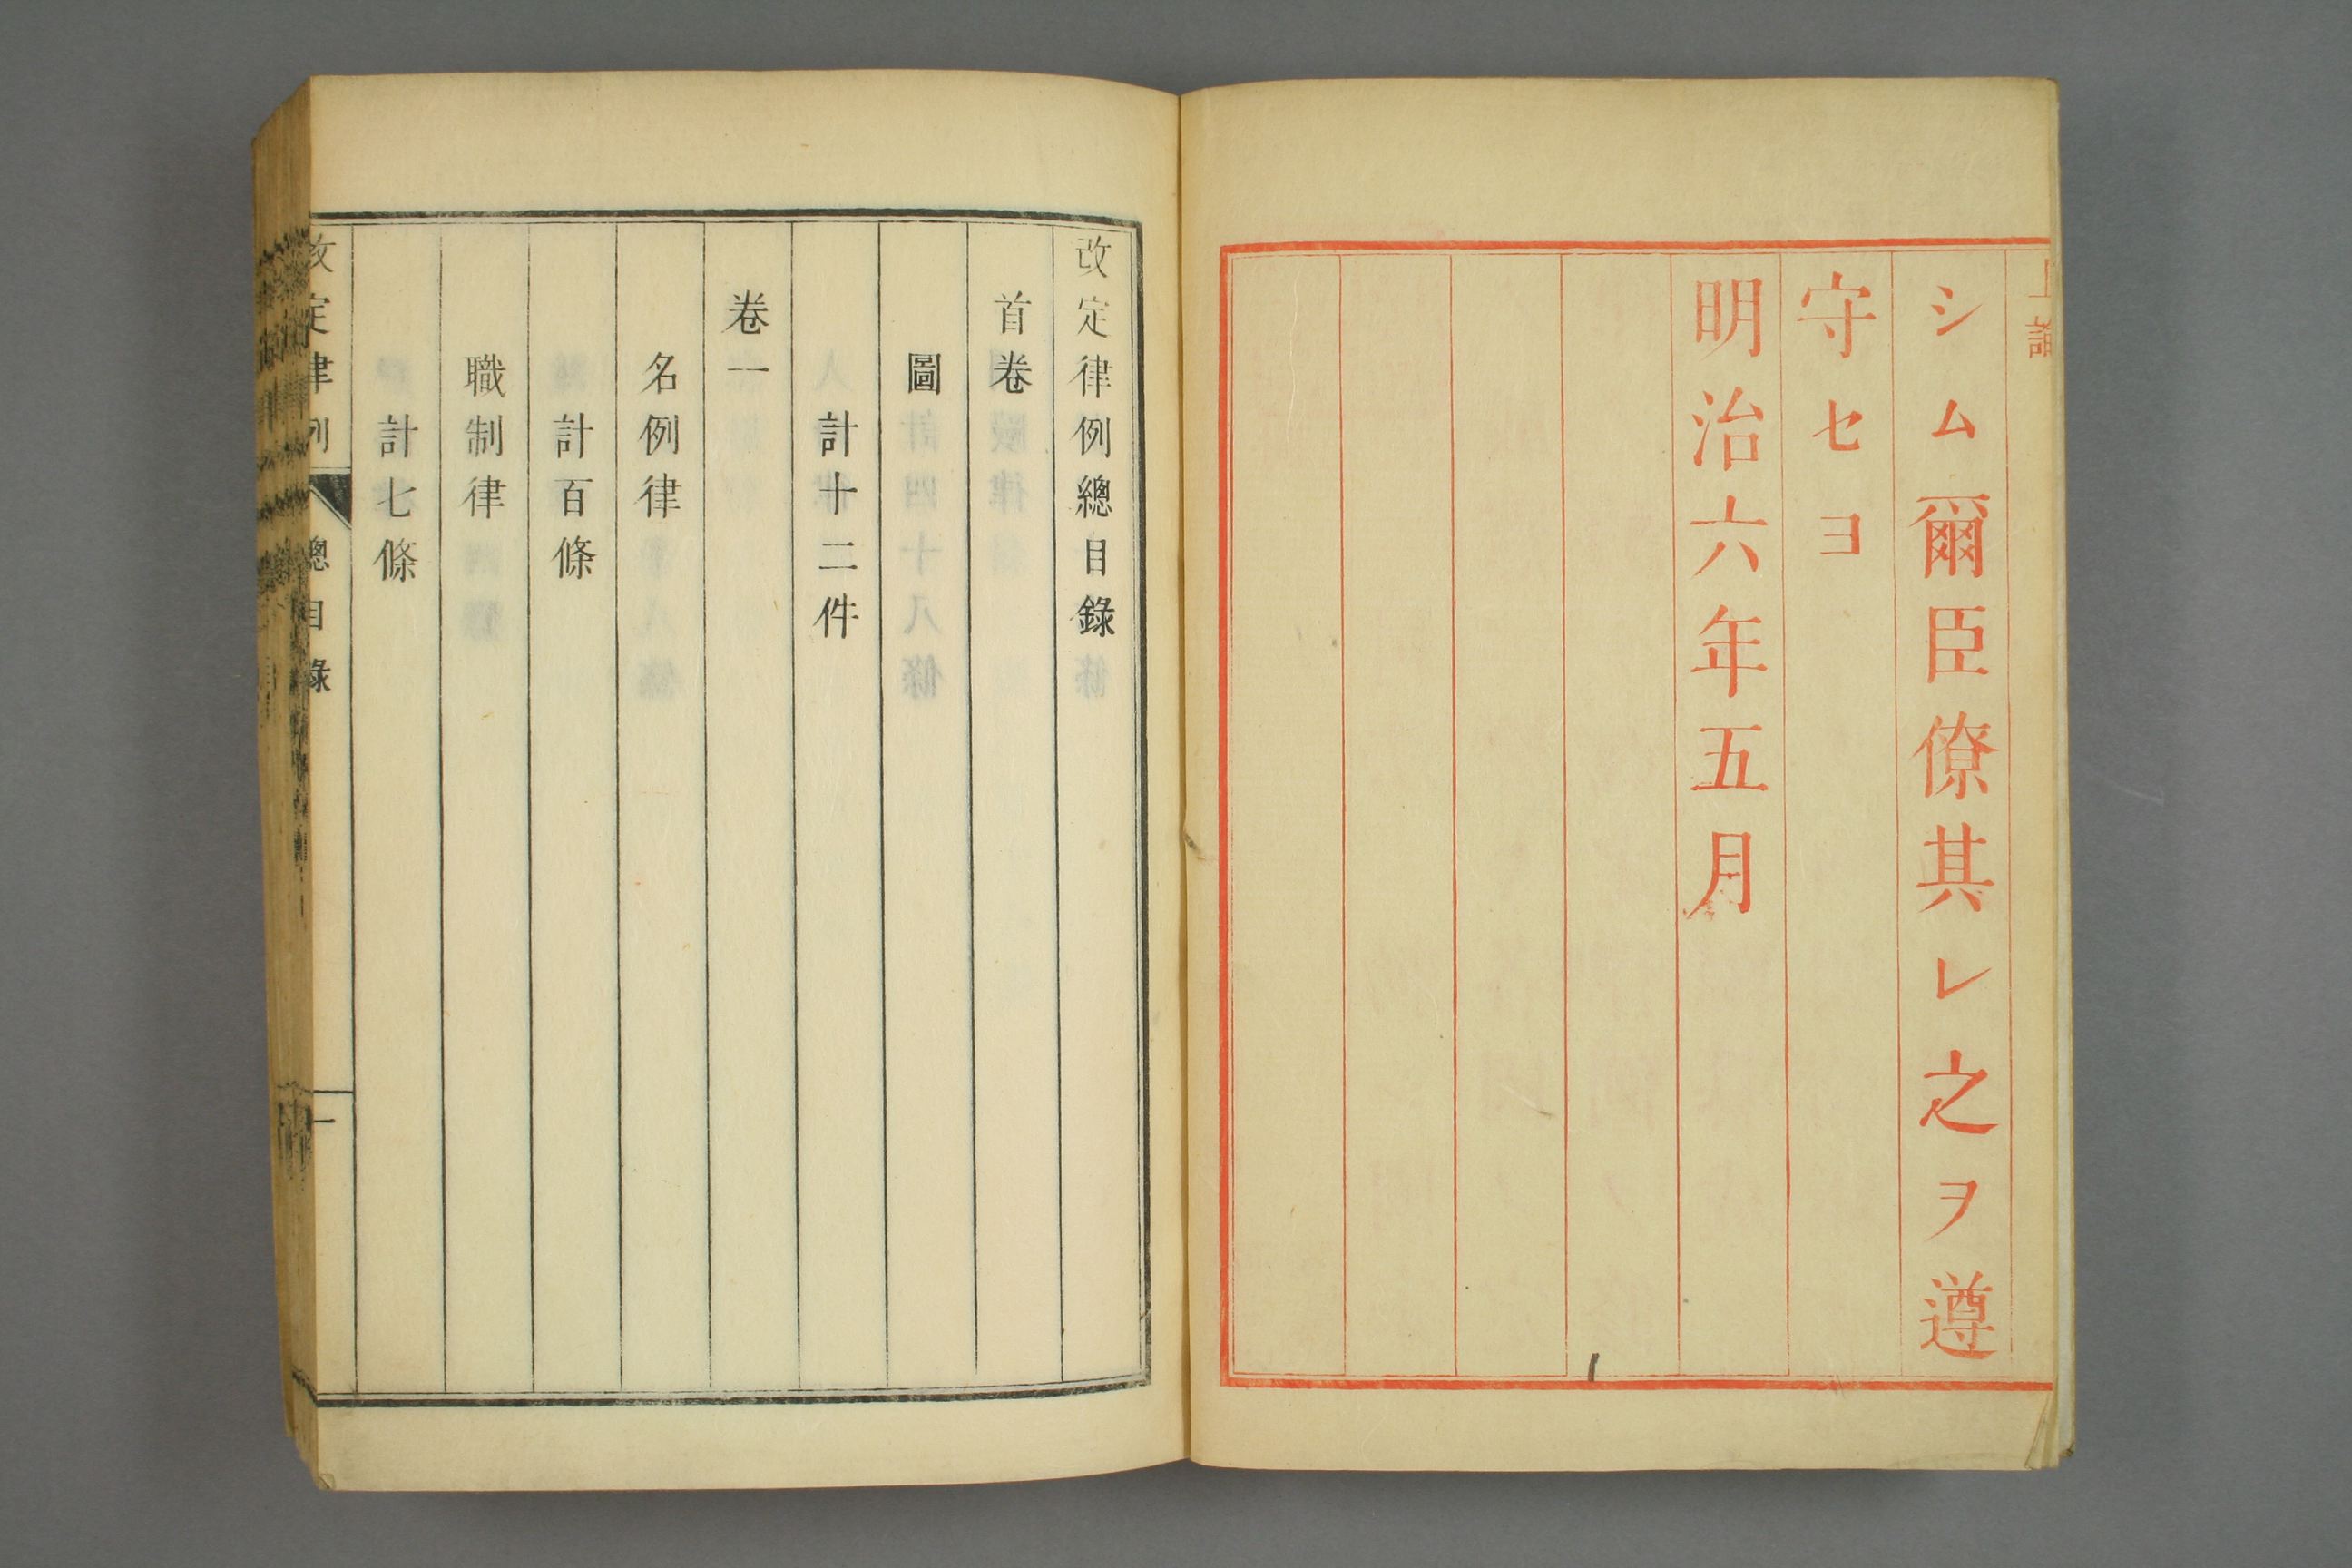 上諭
シム爾臣僚其レ之ヲ遵
守セヨ
明治六年五月
改定律例總目錄
首卷
圖
計十二件
卷一
名例律
計百條
職制律
計七條
改定律例
總目錄
一